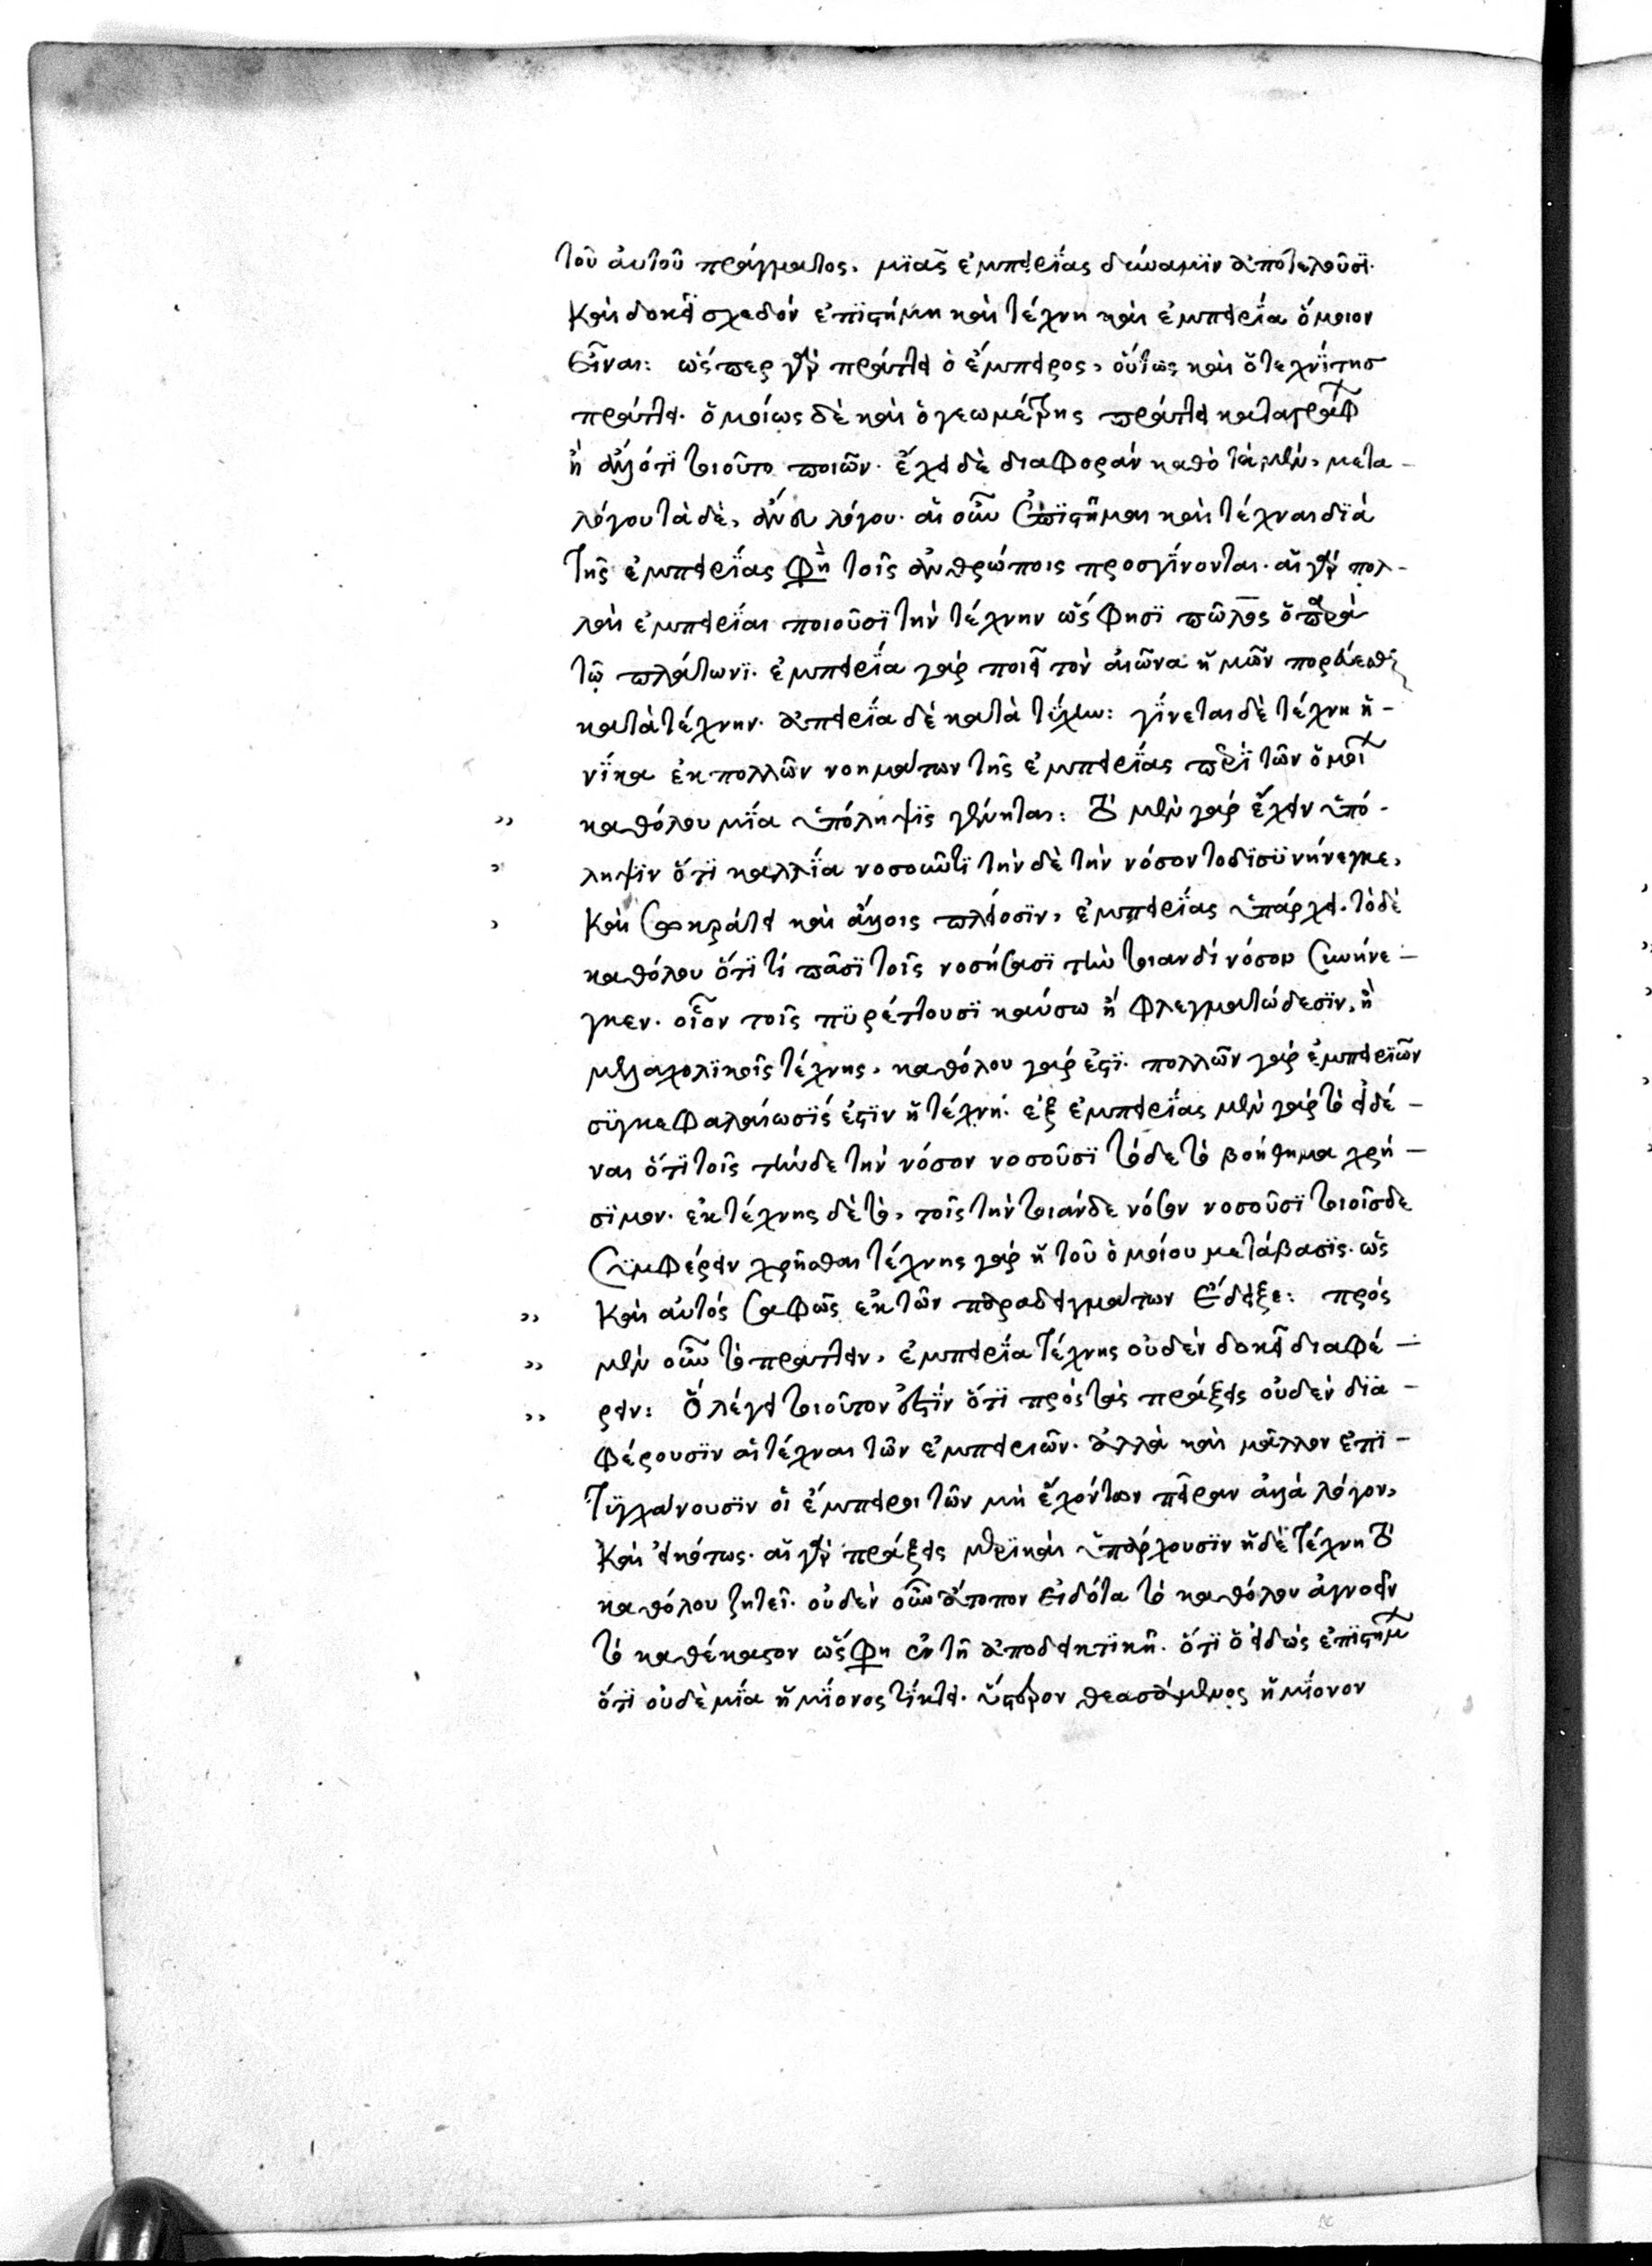 τοῦ αὐτοῦ πράγματος, μϊᾶς ἐμπειρΐας δύναμϊν ἀποτελοῦσϊ.
Καὶ δοκεῖ σχεδόν ἐπϊστήμη καὶ τέχνη καὶ ἐμπειρΐα ὅμοιον
εἶναι: ὥσπερ γὰρ πράττει ὁ ἔμπειρος, οὕτως καὶ ὁ τεχνΐτησ
πράττει. ὁμοίως δὲ καὶ ὁ γεωμέτρης πράττει καταγράφ
ἢ ἄλλότϊ τοιοῦτο ποιῶν. ἔχει δὲ διαφοράν καθὸ τὰ μὲν, μετα-
λόγου τὰ δὲ, ἄνευ λόγου. αἱ οὖν ἐπϊστῆμαι καὶ τέχναι δϊά
τῆς ἐμπειρΐας φη τοῖς ἀνθρώποις προσγΐνονται. αἱ γὰρ πολ-
λαὶ ἐμπειρΐαι ποιοῦσϊ τὴν τέχνην ὥς φησϊ πῶλος ὁ παρὰ
τῷ πλάτωνϊ. ἐμπειρΐα γάρ ποιεῖ τὸν αἰῶνα ἡμῶν πορεύεσθαι
κατὰ τέχνην. ἀπειρΐα δὲ κατὰ τύχην: γΐνεται δὲ τέχνη ἡ-
νΐκα ἐκ πολλῶν νοημάτων τῆς ἐμπειρΐας περὶ τῶν ὁμοί
καθόλου μΐα ὑπόληψϊς γένηται: Τὸ μὲν γάρ ἔχειν ὑπό-
ληψϊν ὅτϊ καλλΐα νοσοῦντϊ τὴν δὲ τὴν νόσον τοδϊσϋνήνεγκε,
Καὶ Σωκράτει καὶ ἄλλοις πλείοσϊν, ἐμπειρΐας ὑπάρχει. τὸ δὲ
καθόλου ὅτϊ τί πᾶσϊ τοῖς νοσήσασϊ τὴν τοιανδί νόσον συνήνε-
γκεν. οἷον τοῖς πϋρέττουσϊ καύσω ἢ φλεγματώδεσϊν, ἢ
μελαχολϊκοῖς τέχνης. καθόλου γάρ ἐστϊ. πολλῶν γάρ ἐμπειρϊῶν
σϋγκεφαλαίωσϊς ἐστϊν ἡ τέχνη. ἐξ ἐμπειρΐας μὲν γάρ τὸ εἰδέ-
ναι ὅτϊ τοῖς τήνδε τὴν νόσον νοσοῦσϊ τόδε τὸ βοήθημα χρή-
σϊμον. ἐκ τέχνης δὲ τὸ, τοῖς τὴν τοιάνδε νόσον νοσοῦσϊ τοιοῖσδε
Σϋμφέρειν χρῆσθαι τέχνης γάρ ἡ τοῦ ὁμοίου μετάβασϊς. ὡς
Καὶ αὐτός σαφῶς ἐκ τῶν παραδειγμάτων ἔδειξε: πρός
μὲν οὖν τὸ πράττειν, ἐμπειρΐα τέχνης οὐδέν δοκεῖ διαφέ-
ρειν: Ὃ λέγει τοιοῦτον ἐστϊν ὅτϊ πρός τὰς πράξεις οὐδὲν δϊα-
φέρουσϊν αἱ τέχναι τῶν ἐμπειριῶν. ἀλλὰ καὶ μᾶλλον ἐπϊ-
τϋγχάνουσϊν οἱ ἔμπειροι τῶν μὴ ἐχόντων πεῖραν ἀλλά λόγον,
Καὶ εἰκότως. αἱ γὰρ πράξεις μερϊκαὶ ὑπάρχουσϊν ἡ δὲ τέχνη τὸ
καθόλου ζητεῖ. οὐδὲν οὖν ἄτοπον εἰδότα τὸ καθόλου ἀγνοεῖν
τὸ καθέκαστον ὥς φη ἐν τῇ ἀποδεικτϊκῇ. ὅτϊ ὁ εἰδώς ἐπϊστημ
ὅτϊ οὐδὲ μΐα ἡμΐονος τΐκτει. ὕστερον θεασάμενος ἡμΐονον